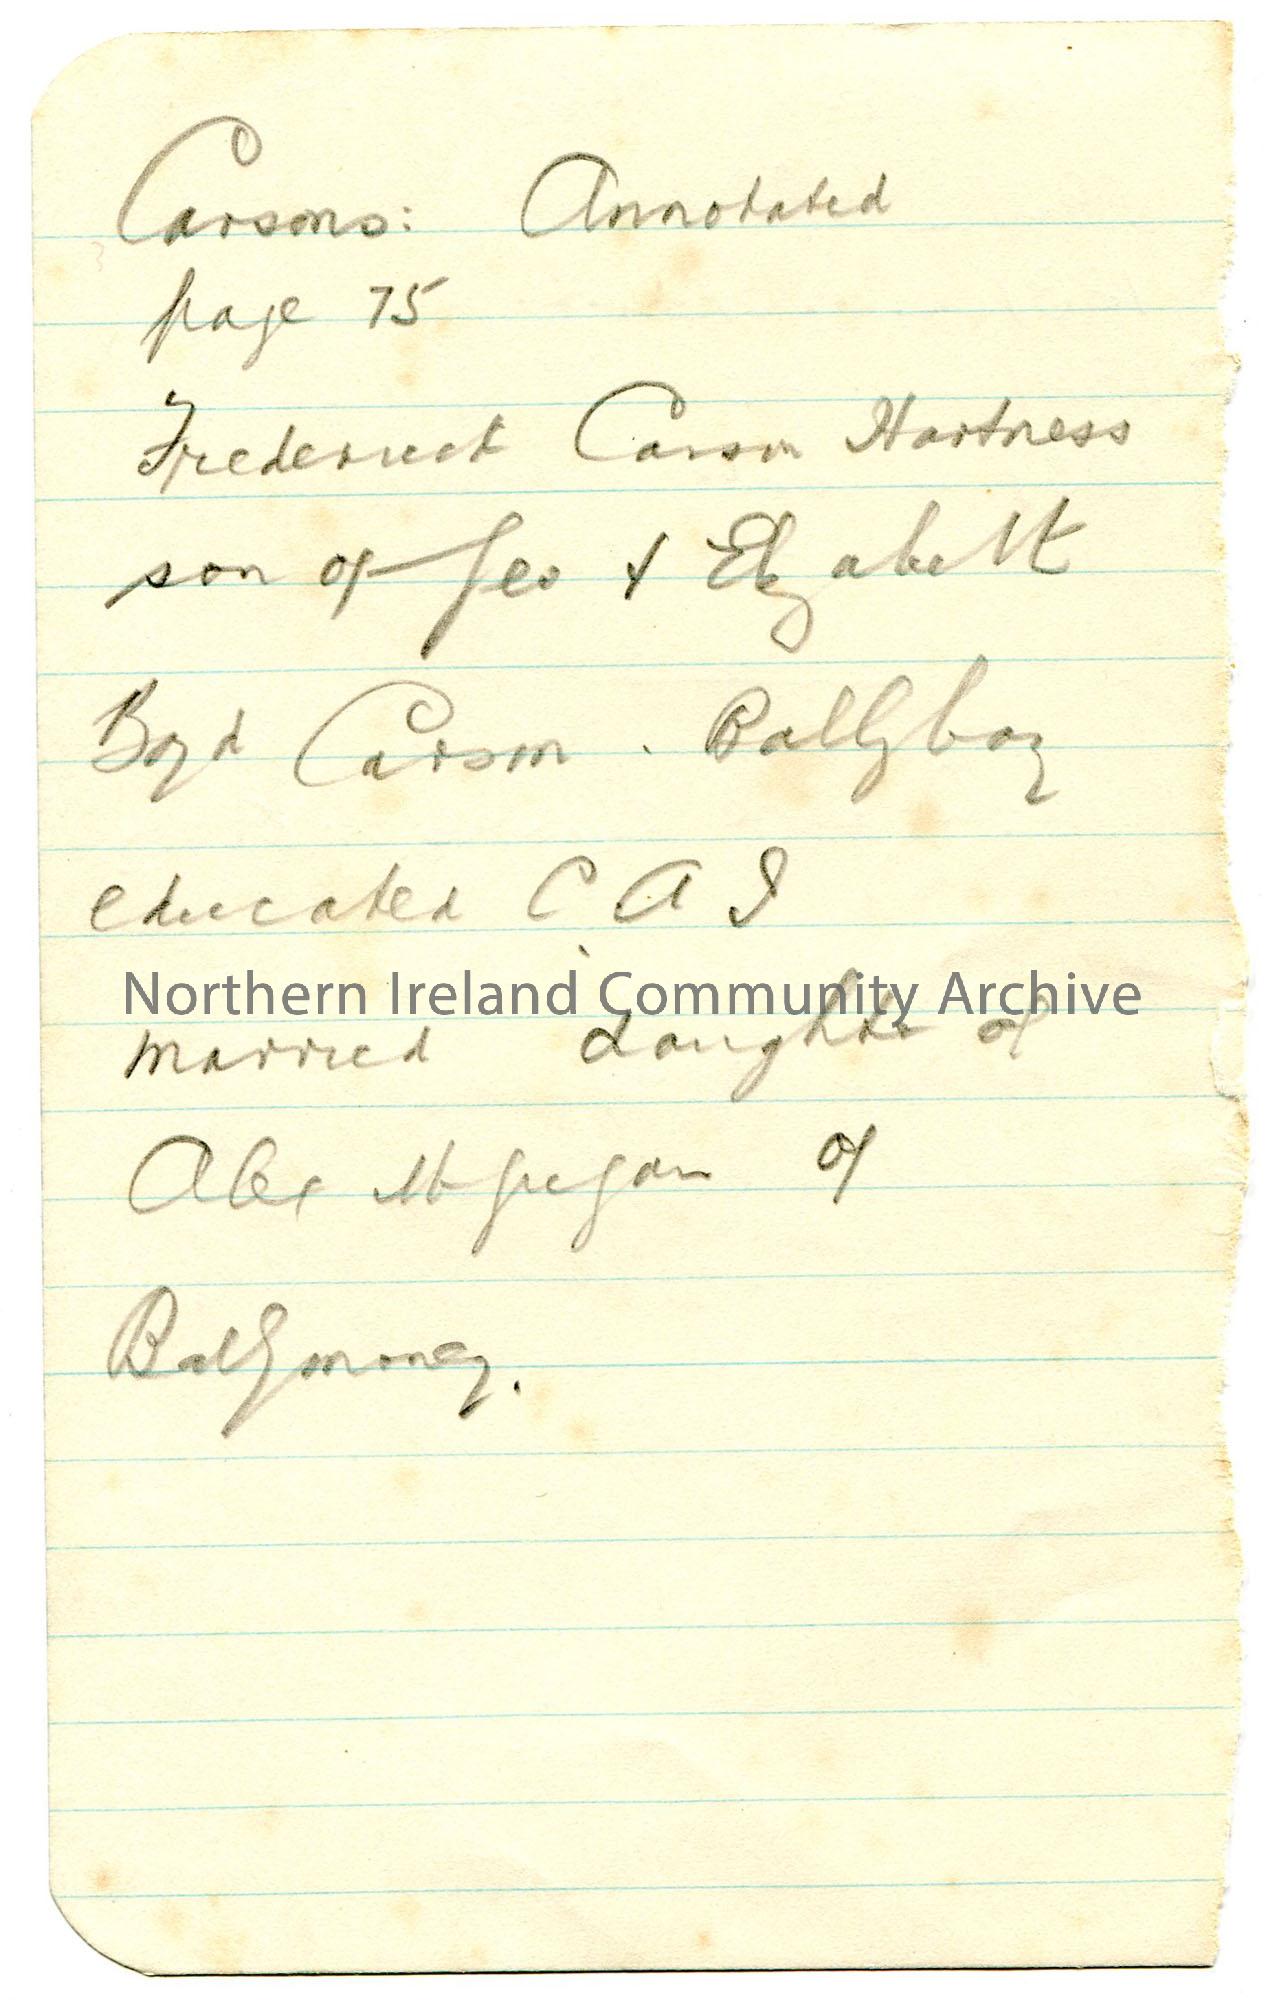 Carsons: Annotated
page 75
Frederick Carson Hartness
son of Geo & Elizabeth
Boyd Carson. Ballybay
educated C A I
Northern Ireland Community Archive
married daughter of
Alex McGregor of
Ballymoney.